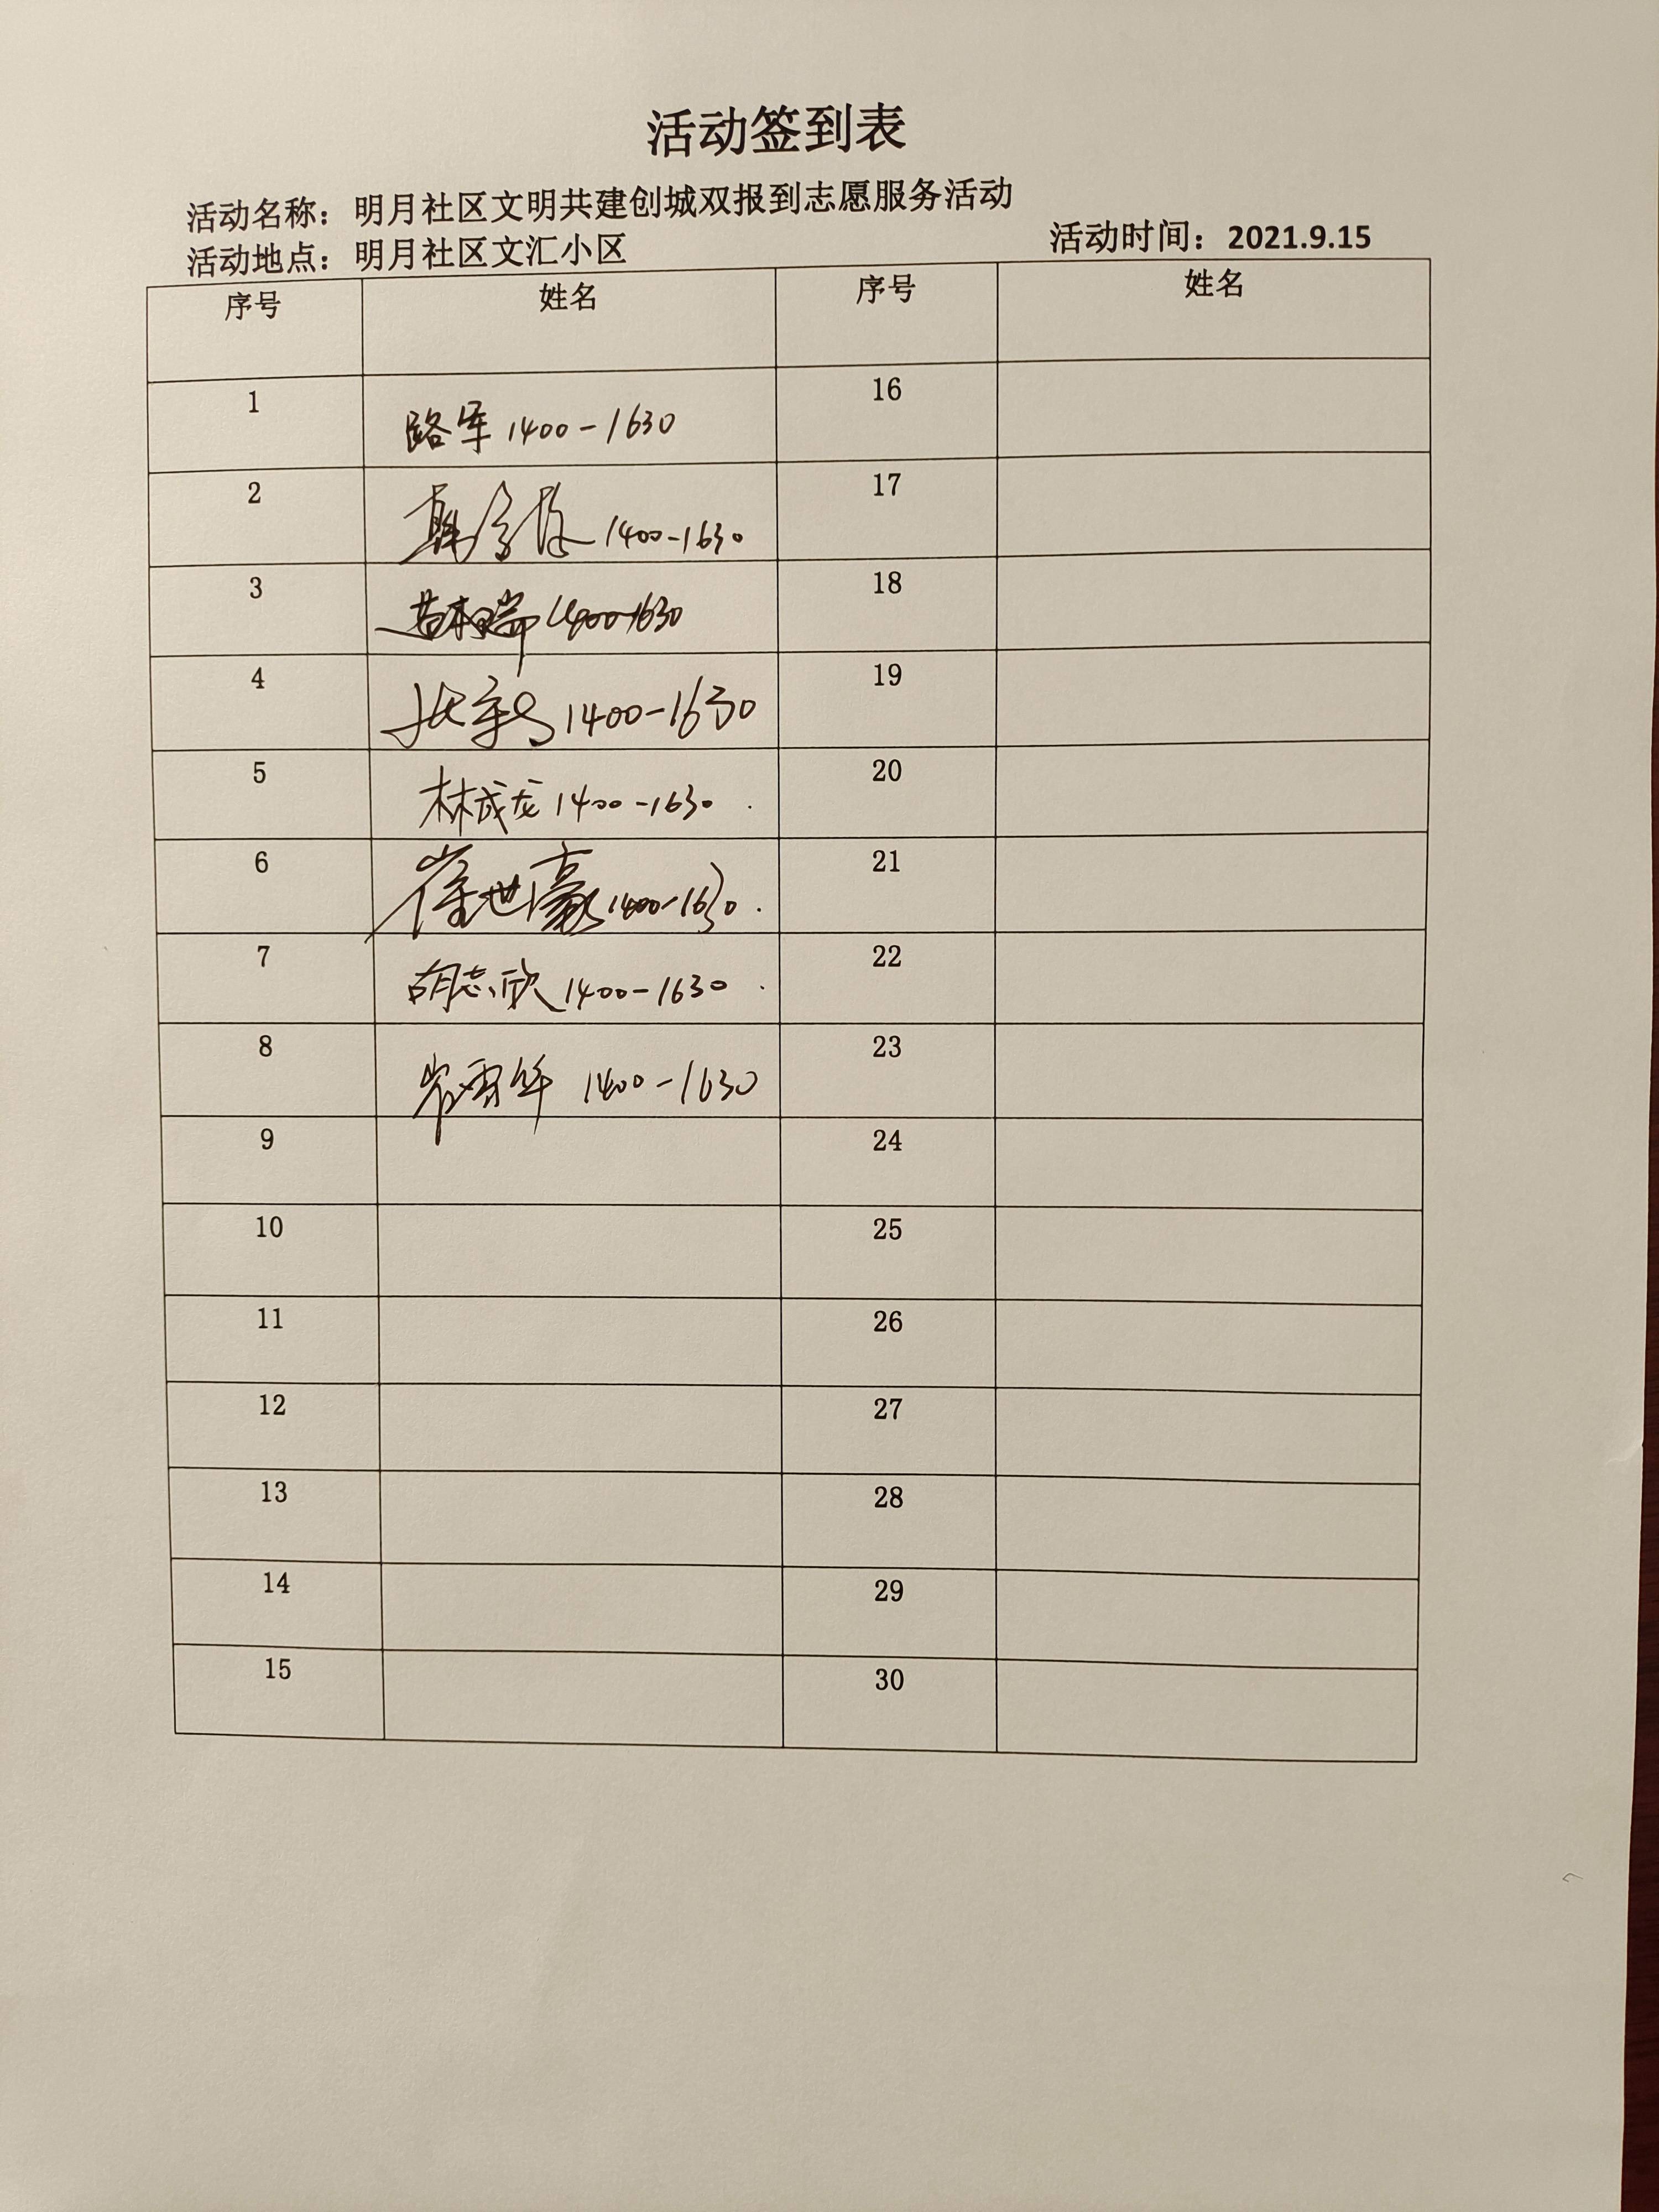 活动签到表
活动名称：明月社区文明共建创城双报到志愿服务活动
活动地点：明月社区文汇小区 活动时间：2021.9.15
序号 姓名 序号 姓名
1 路军 1400-1630 16
2 1400-1630 17
3 1400-1630 18
4 1400-1630 19
5 林成龙 1400-1630 20
6 崔世豪 1400-1630 21
7 胡志欣 1400-1630 22
8 1400-1630 23
9 24
10 25
11 26
12 27
13 28
14 29
15 30